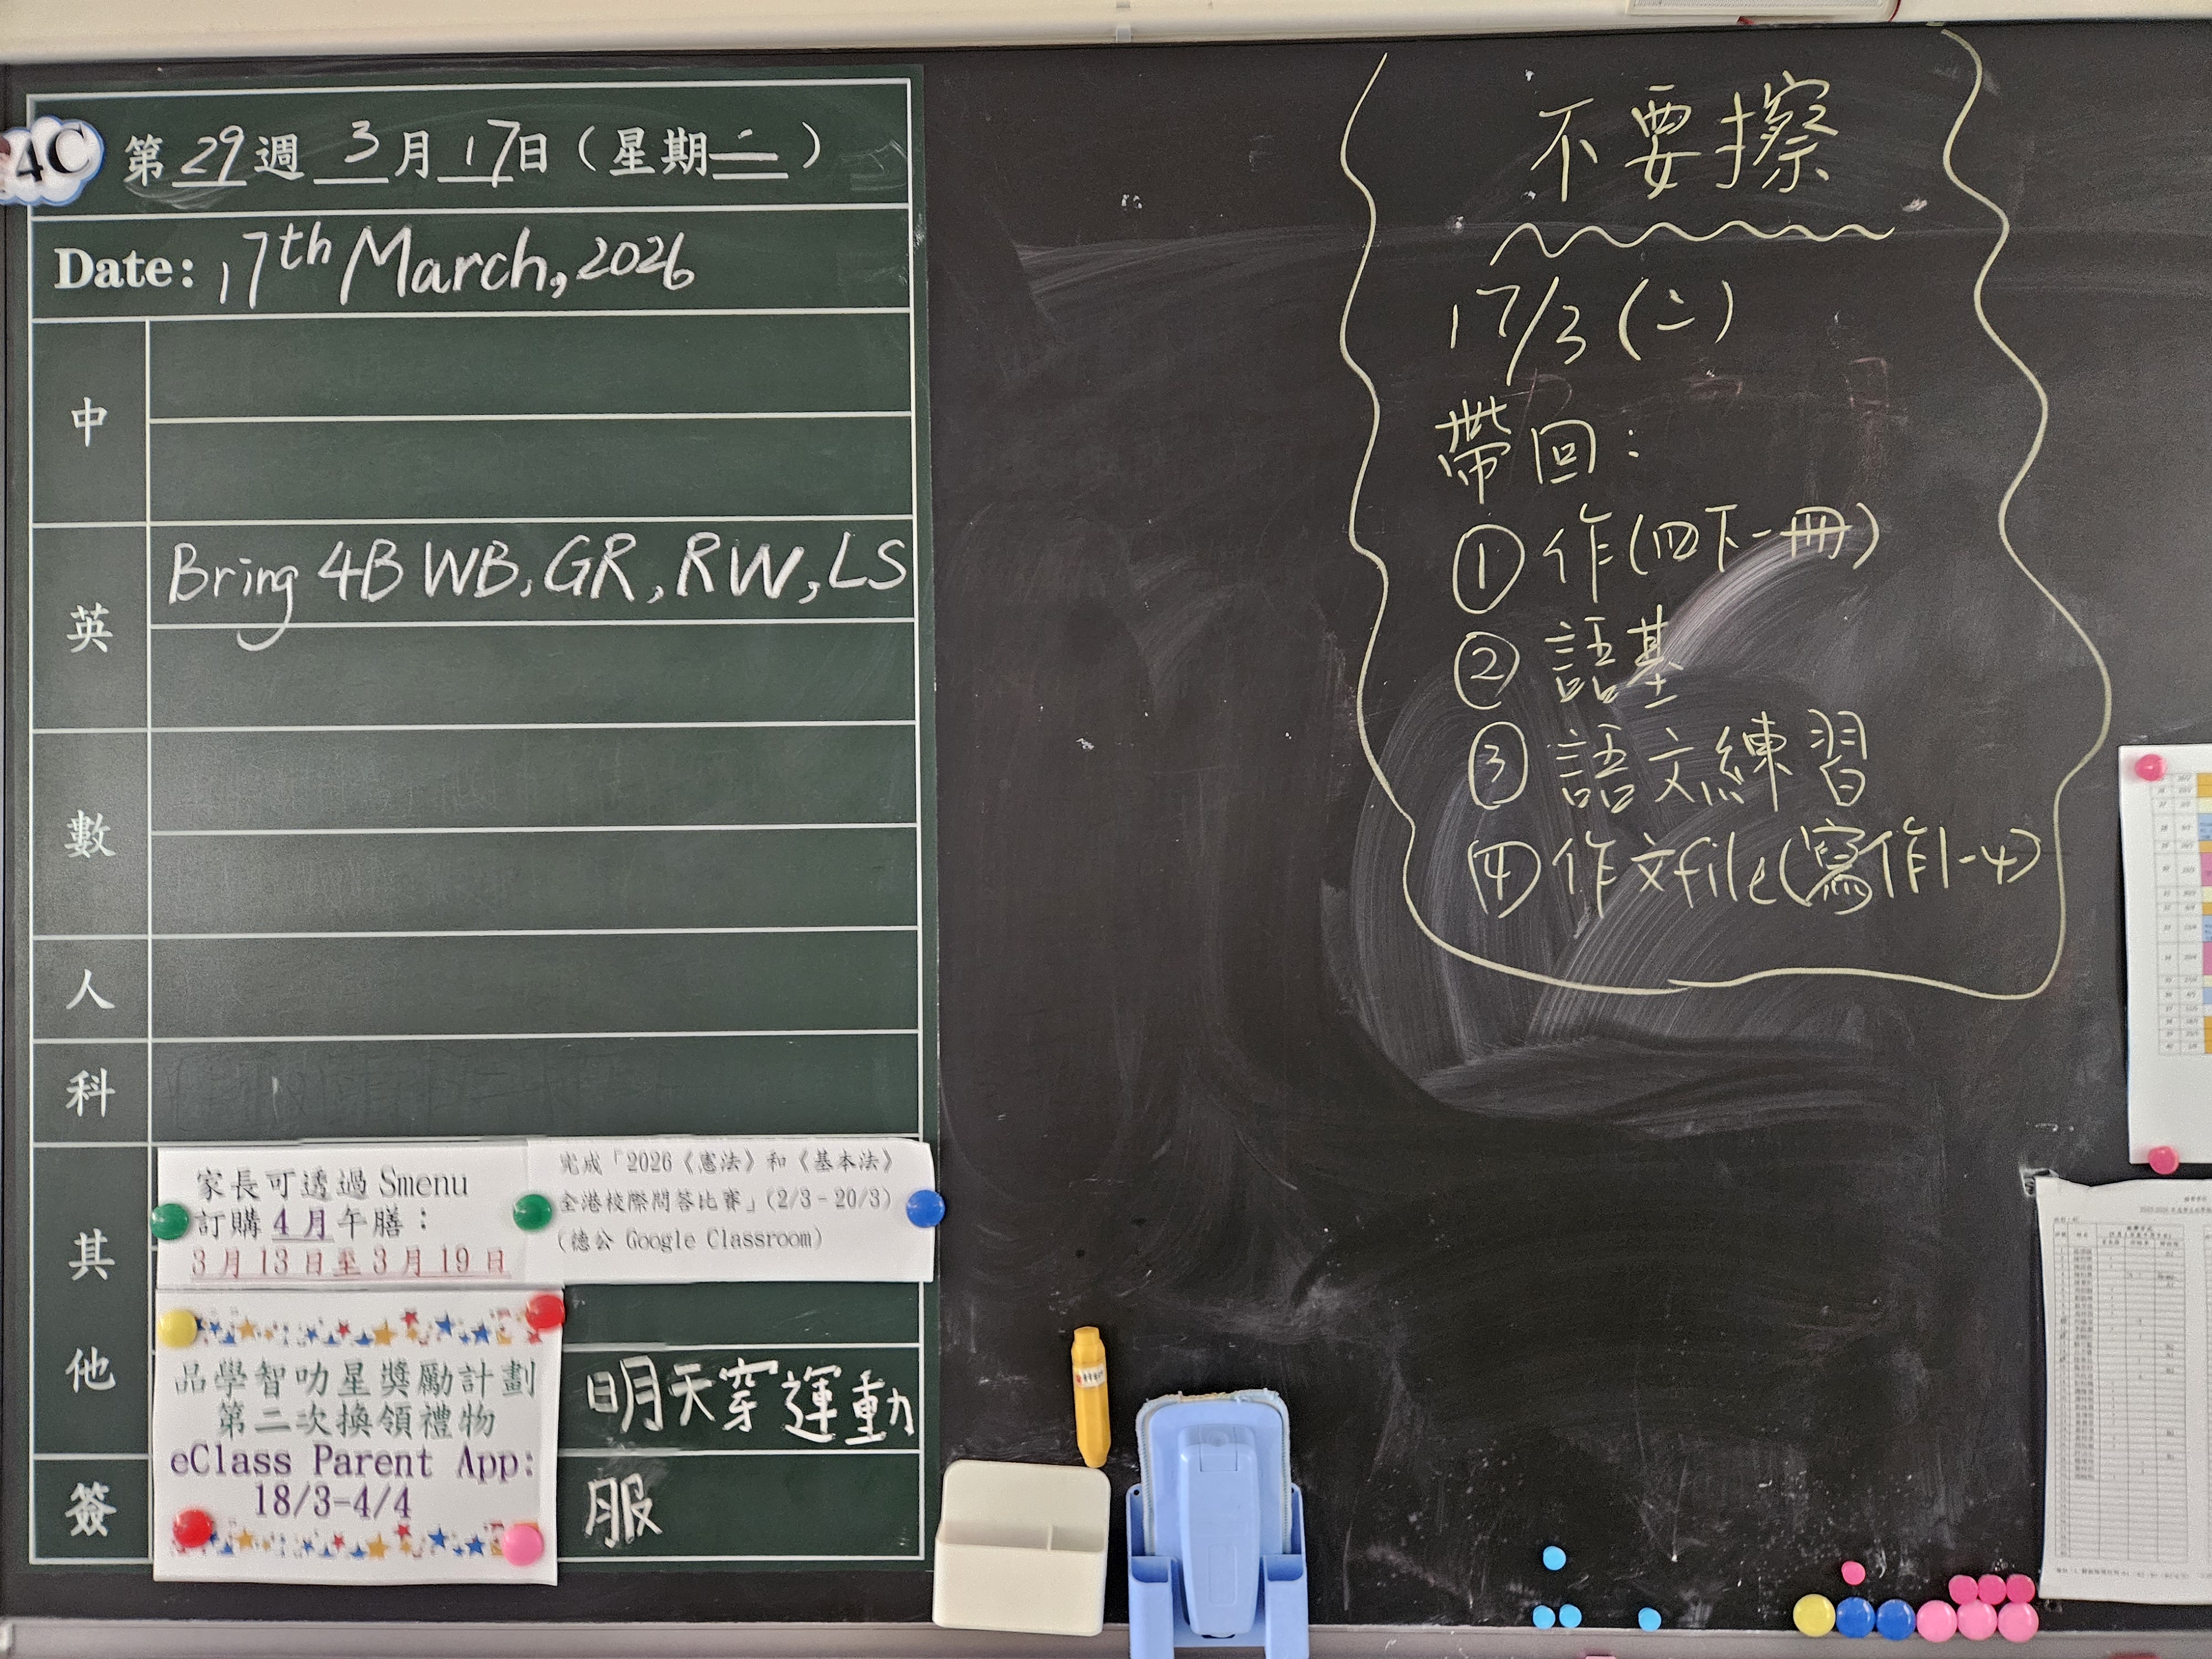 4C
第 29 週 3 月 17 日（星期二）
Date: 17th March, 2026
中
英
Bring 4B WB, GR, RW, LS
數
人
科
其他
家長可透過 Smenu
訂購 4 月午膳：
3 月 13 日至 3 月 19 日
完成「2026《憲法》和《基本法》
全港校際問答比賽」(2/3－20/3)
(德公 Google Classroom)
品學智叻星獎勵計劃
第二次換領禮物
eClass Parent App:
18/3-4/4
明天穿運動
簽
服
不要擦
17/3 (二)
帶回：
① 作(四下一冊)
② 語基
③ 語文練習
④ 作文file(寫作1-4)